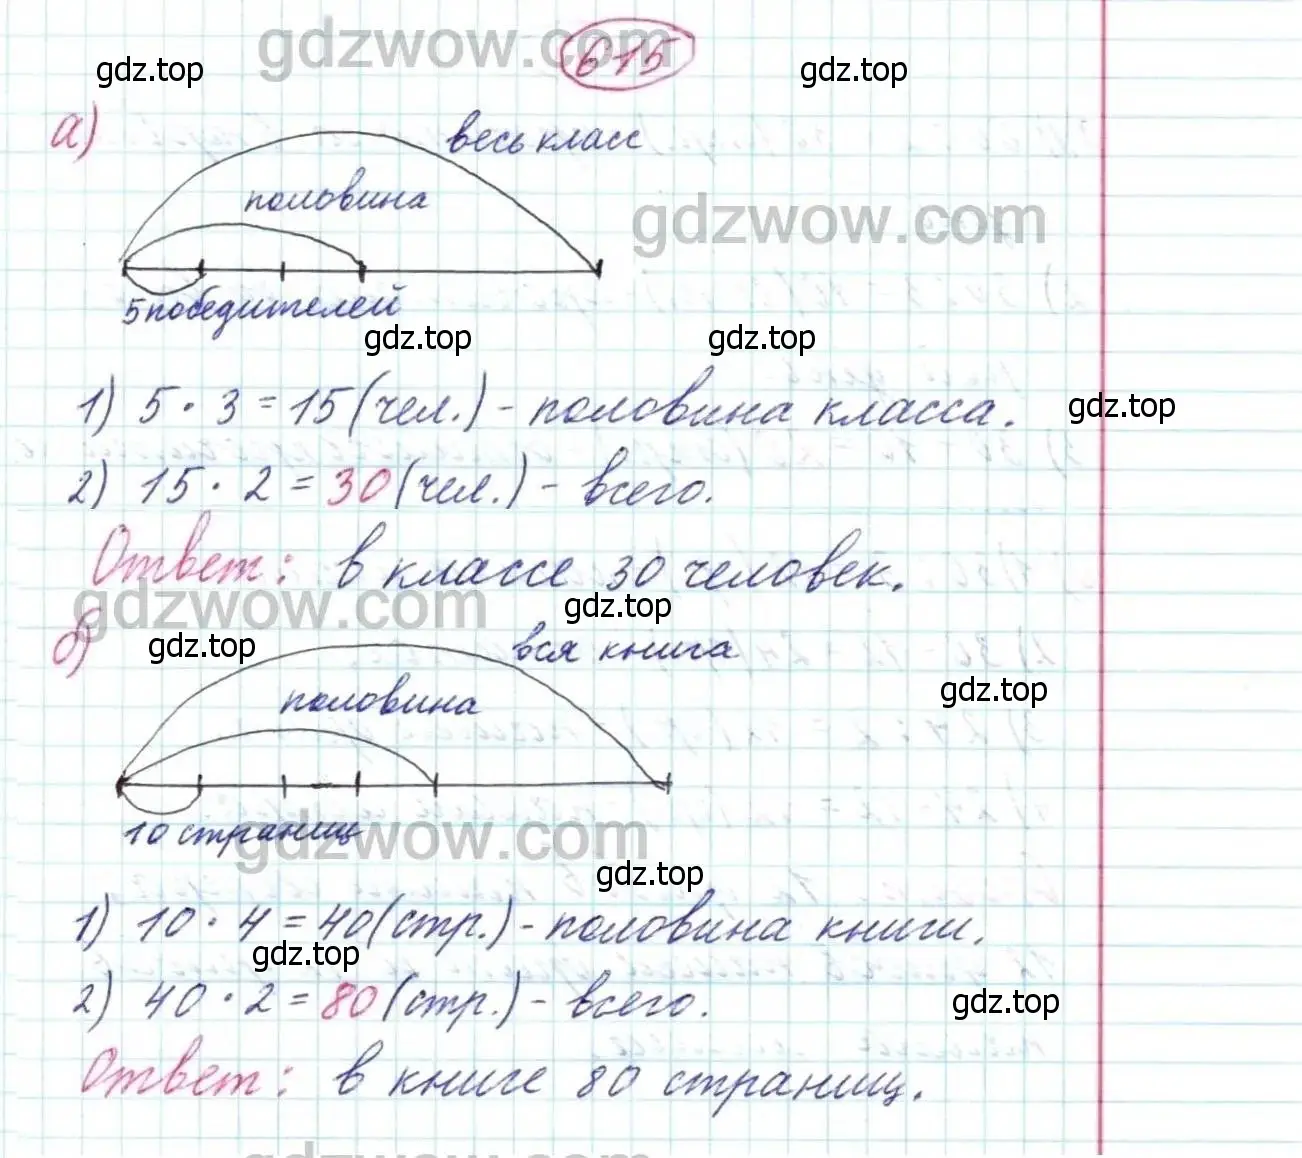 gdzwow.com
615
gdz.top
gdz.top
а)
весь класс
половина
gdzwow.com
5 победителей
gdz.top
gdz.top
1) 5 · 3 = 15 (чел.) - половина класса.
gdz.top
2) 15 · 2 = 30 (чел.) - всего.
Ответ: в классе 30 человек.
gdzwow.com
gdz.top
б)
gdz.top
вся книга
gdz.top
половина
10 страниц
gdzwow.com
gdz.top
1) 10 · 4 = 40 (стр.) - половина книги.
gdz.top
2) 40 · 2 = 80 (стр.) - всего.
gdz.top
Ответ: в книге 80 страниц.
gdzwow.com